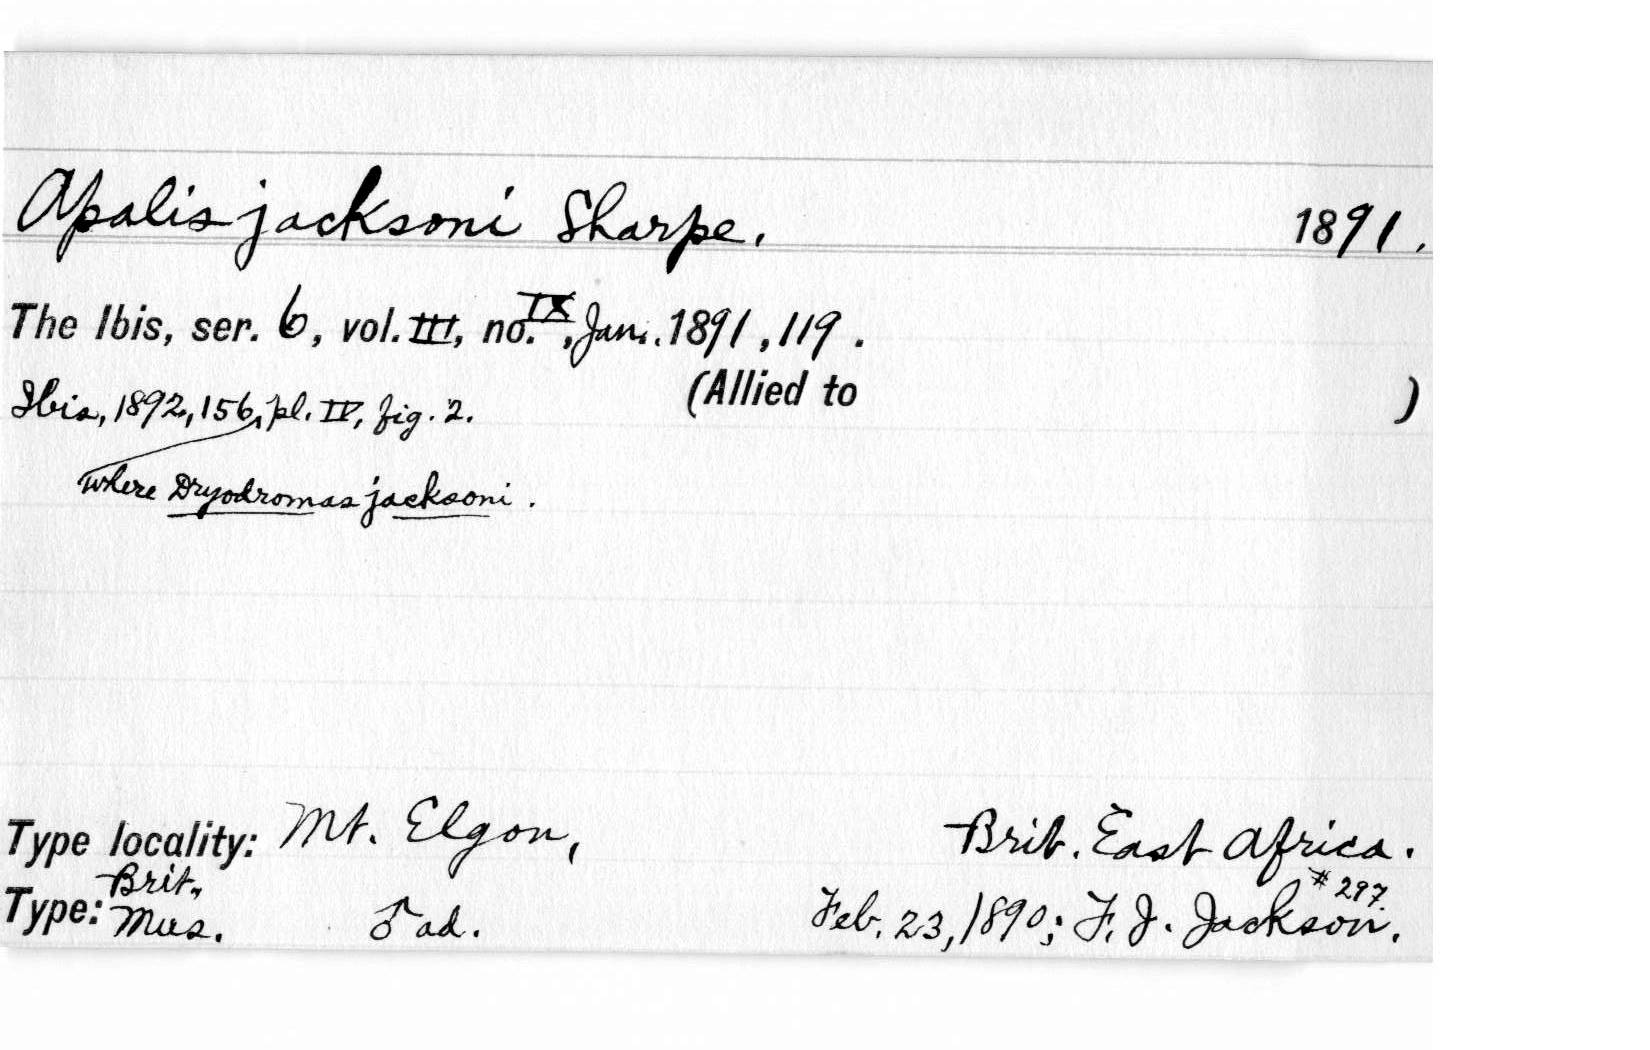 Apalis jacksoni Sharpe. 1891.
The Ibis, ser. 6, vol. III, no. IX, Jan. 1891, 119.
(Allied to )
Ibis, 1892, 156, pl. IV, fig. 2.
where Dryodromas jacksoni.
Type locality: Mt. Elgon, Brit. East Africa.
Type: Brit. Mus. ♂ ad. Feb. 23, 1890; F. J. Jackson. #297.